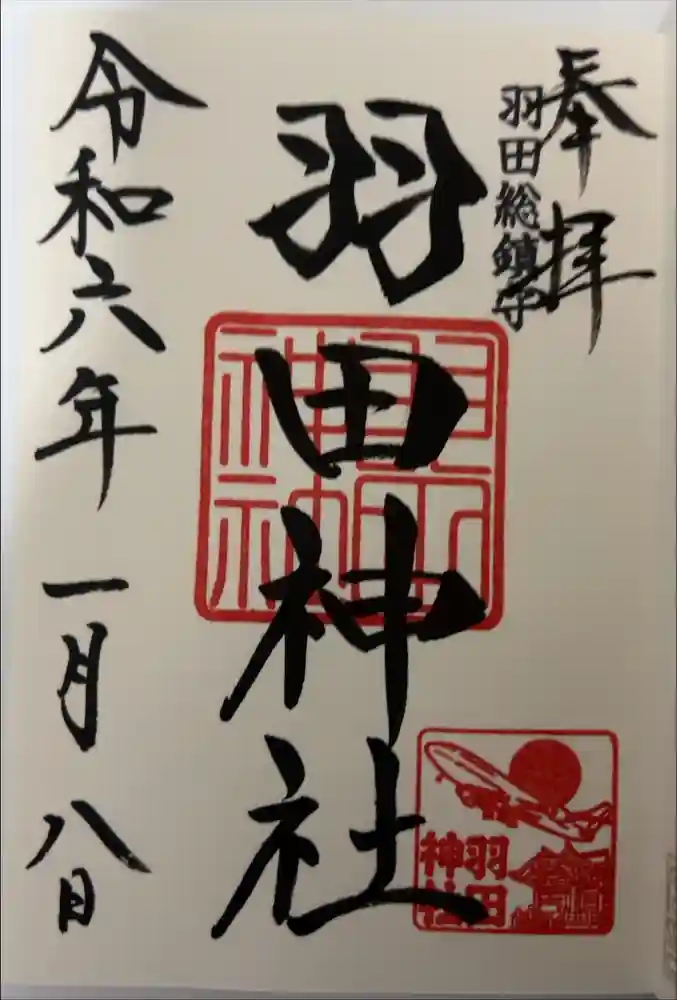 奉拝
羽田総鎮守
羽田神社
令和六年一月八日
羽田
神社